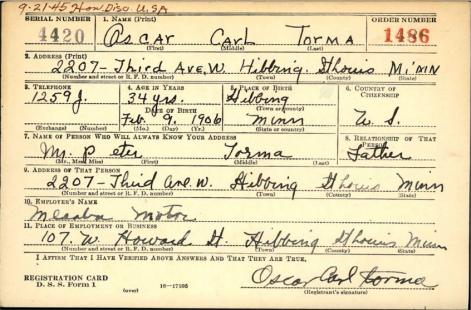 9-21-45 Hon Disc. USA
SERIAL NUMBER 1. NAME (Print) ORDER NUMBER
4420 Oscar Carl Torma 1486
(First) (Middle) (Last)
2. ADDRESS (Print)
2207 - Third Ave. W. Hibbing St Louis Minn
(Number and street or R. F. D. number) (Town) (County) (State)
3. TELEPHONE 4. AGE IN YEARS 5. PLACE OF BIRTH 6. COUNTRY OF CITIZENSHIP
1259 J. 34 yrs. Hibbing
DATE OF BIRTH (Town or county)
Feb. 9. 1906 Minn U. S.
(Exchange) (Number) (Mo.) (Day) (Yr.) (State or country)
7. NAME OF PERSON WHO WILL ALWAYS KNOW YOUR ADDRESS 8. RELATIONSHIP OF THAT PERSON
Mr. Peter Torma Father
(Mr., Mrs., Miss) (First) (Middle) (Last)
9. ADDRESS OF THAT PERSON
2207 - Third Ave. W. Hibbing St Louis Minn
(Number and street or R. F. D. number) (Town) (County) (State)
10. EMPLOYER'S NAME
Mesaba Motor
11. PLACE OF EMPLOYMENT OR BUSINESS
107 W. Howard St. Hibbing St Louis Minn
(Number and street or R. F. D. number) (Town) (County) (State)
I AFFIRM THAT I HAVE VERIFIED ABOVE ANSWERS AND THAT THEY ARE TRUE.
REGISTRATION CARD Oscar Carl Torma
D. S. S. Form 1 (over) 16-17105 (Registrant's signature)